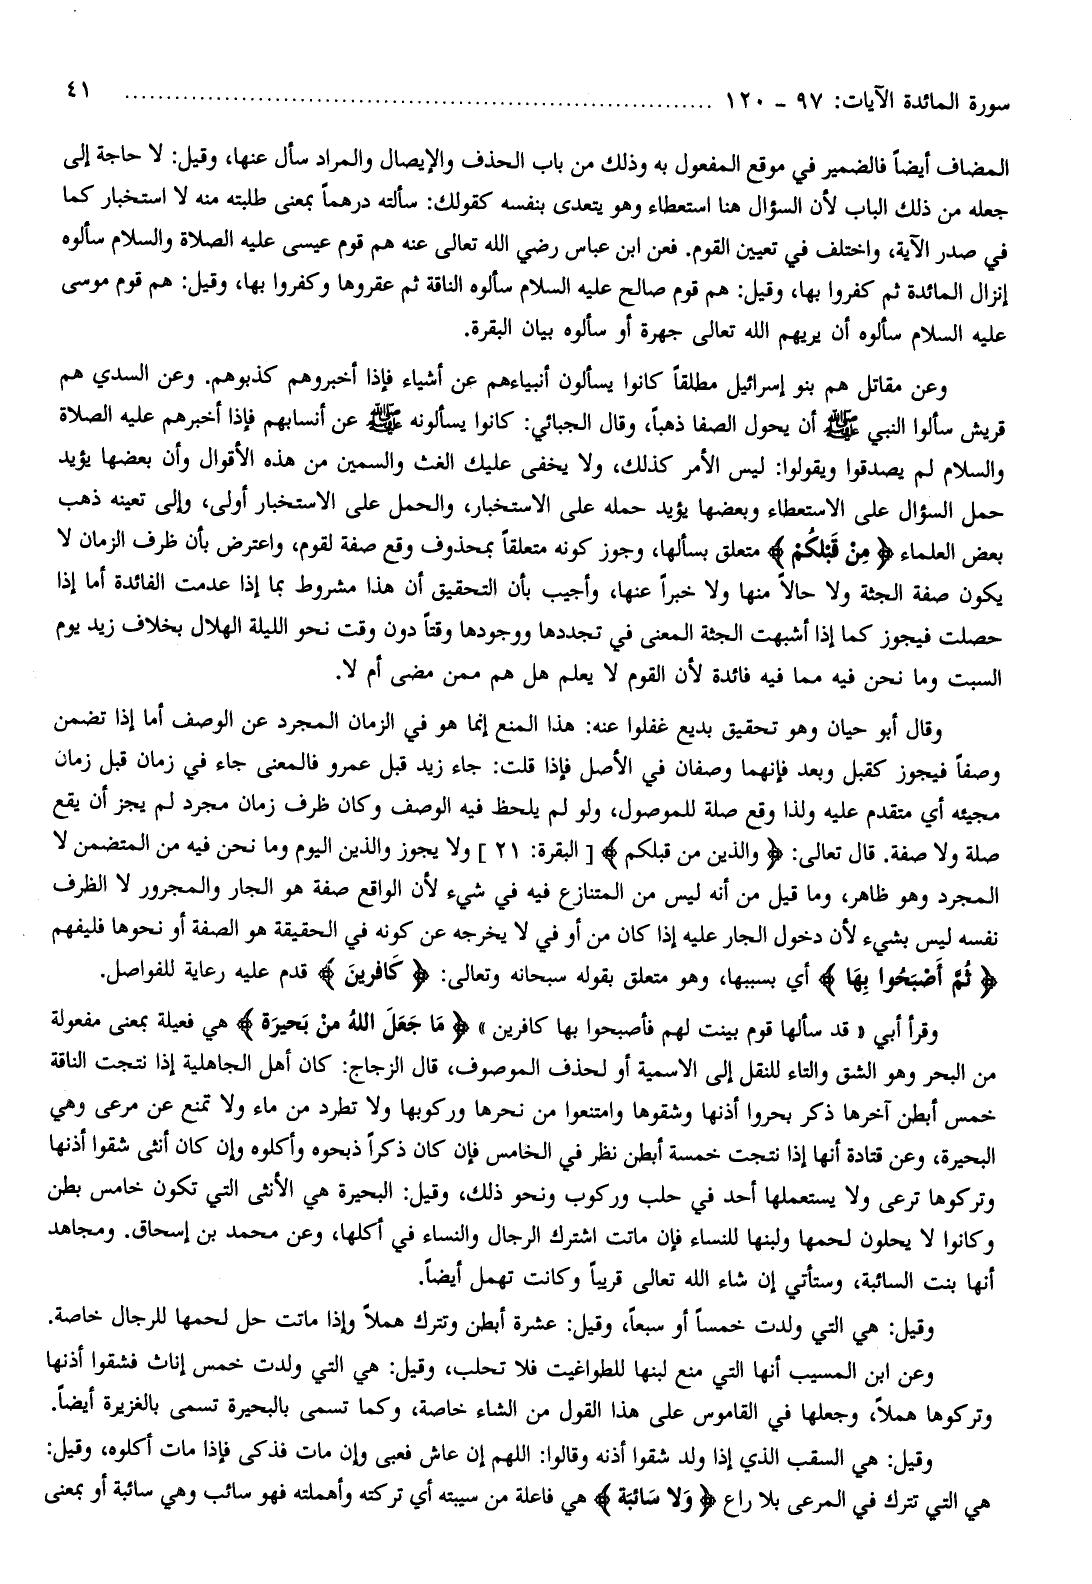 سورة المائدة الآيات: ٩٧ – ١٢٠ ........................................ ٤١
المضاف أيضاً فالضمير في موقع المفعول به وذلك من باب الحذف والإيصال والمراد سأل عنها، وقيل: لا حاجة إلى
جعله من ذلك الباب لأن السؤال هنا استعطاء وهو يتعدى بنفسه كقولك: سألته درهماً بمعنى طلبته منه لا استخبار كما
في صدر الآية، واختلف في تعيين القوم. فعن ابن عباس رضي الله تعالى عنه هم قوم عيسى عليه الصلاة والسلام سألوه
إنزال المائدة ثم كفروا بها، وقيل: هم قوم صالح عليه السلام سألوه الناقة ثم عقروها وكفروا بها، وقيل: هم قوم موسى
عليه السلام سألوه أن يريهم الله تعالى جهرة أو سألوه بيان البقرة.
وعن مقاتل هم بنو إسرائيل مطلقاً كانوا يسألون أنبياءهم عن أشياء فإذا أخبروهم كذبوهم. وعن السدي هم
قريش سألوا النبي ﷺ أن يحول الصفا ذهباً، وقال الجبائي: كانوا يسألونه ﷺ عن أنسابهم فإذا أخبرهم عليه الصلاة
والسلام لم يصدقوا ويقولوا: ليس الأمر كذلك، ولا يخفى عليك الغث والسمين من هذه الأقوال وأن بعضها يؤيد
حمل السؤال على الاستعطاء وبعضها يؤيد حمله على الاستخبار، والحمل على الاستخبار أولى، وإلى تعينه ذهب
بعض العلماء ﴿ مِنْ قَبْلِكُمْ ﴾ متعلق بسألها، وجوز كونه متعلقاً بمحذوف وقع صفة لقوم، واعترض بأن ظرف الزمان لا
يكون صفة الجثة ولا حالاً منها ولا خبراً عنها، وأجيب بأن التحقيق أن هذا مشروط بما إذا عدمت الفائدة أما إذا
حصلت فيجوز كما إذا أشبهت الجثة المعنى في تجددها ووجودها وقتاً دون وقت نحو الليلة الهلال بخلاف زيد يوم
السبت وما نحن فيه مما فيه فائدة لأن القوم لا يعلم هل هم ممن مضى أم لا.
وقال أبو حيان وهو تحقيق بديع غفلوا عنه: هذا المنع إنما هو في الزمان المجرد عن الوصف أما إذا تضمن
وصفاً فيجوز كقبل وبعد فإنهما وصفان في الأصل فإذا قلت: جاء زيد قبل عمرو فالمعنى جاء في زمان قبل زمان
مجيئه أي متقدم عليه ولذا وقع صلة للموصول، ولو لم يلحظ فيه الوصف وكان ظرف زمان مجرد لم يجز أن يقع
صلة ولا صفة. قال تعالى: ﴿ والذين من قبلكم ﴾ [ البقرة: ٢١ ] ولا يجوز والذين اليوم وما نحن فيه من المتضمن لا
المجرد وهو ظاهر، وما قيل من أنه ليس من المتنازع فيه في شيء لأن الواقع صفة هو الجار والمجرور لا الظرف
نفسه ليس بشيء لأن دخول الجار عليه إذا كان من أو في لا يخرجه عن كونه في الحقيقة هو الصفة أو نحوها فليفهم
﴿ ثُمَّ أَصْبَحُوا بِهَا ﴾ أي بسببها، وهو متعلق بقوله سبحانه وتعالى: ﴿ كَافرينَ ﴾ قدم عليه رعاية للفواصل.
وقرأ أبي « قد سألها قوم بينت لهم فأصبحوا بها كافرين » ﴿ مَا جَعَلَ اللهُ منْ بَحيرَة ﴾ هي فعيلة بمعنى مفعولة
من البحر وهو الشق والتاء للنقل إلى الاسمية أو لحذف الموصوف، قال الزجاج: كان أهل الجاهلية إذا نتجت الناقة
خمس أبطن آخرها ذكر بحروا أذنها وشقوها وامتنعوا من نحرها وركوبها ولا تطرد من ماء ولا تمنع عن مرعى وهي
البحيرة، وعن قتادة أنها إذا نتجت خمسة أبطن نظر في الخامس فإن كان ذكراً ذبحوه وأكلوه وإن كان أنثى شقوا أذنها
وتركوها ترعى ولا يستعملها أحد في حلب وركوب ونحو ذلك، وقيل: البحيرة هي الأنثى التي تكون خامس بطن
وكانوا لا يحلون لحمها ولبنها للنساء فإن ماتت اشترك الرجال والنساء في أكلها، وعن محمد بن إسحاق. ومجاهد
أنها بنت السائبة، وستأتي إن شاء الله تعالى قريباً وكانت تهمل أيضاً.
وقيل: هي التي ولدت خمساً أو سبعاً، وقيل: عشرة أبطن وتترك هملاً وإذا ماتت حل لحمها للرجال خاصة.
وعن ابن المسيب أنها التي منع لبنها للطواغيت فلا تحلب، وقيل: هي التي ولدت خمس إناث فشقوا أذنها
وتركوها هملاً، وجعلها في القاموس على هذا القول من الشاء خاصة، وكما تسمى بالبحيرة تسمى بالغزيرة أيضاً.
وقيل: هي السقب الذي إذا ولد شقوا أذنه وقالوا: اللهم إن عاش فعبى وإن مات فذكى فإذا مات أكلوه، وقيل:
هي التي تترك في المرعى بلا راع ﴿ وَلا سَائبَة ﴾ هي فاعلة من سيبته أي تركته وأهملته فهو سائب وهي سائبة أو بمعنى